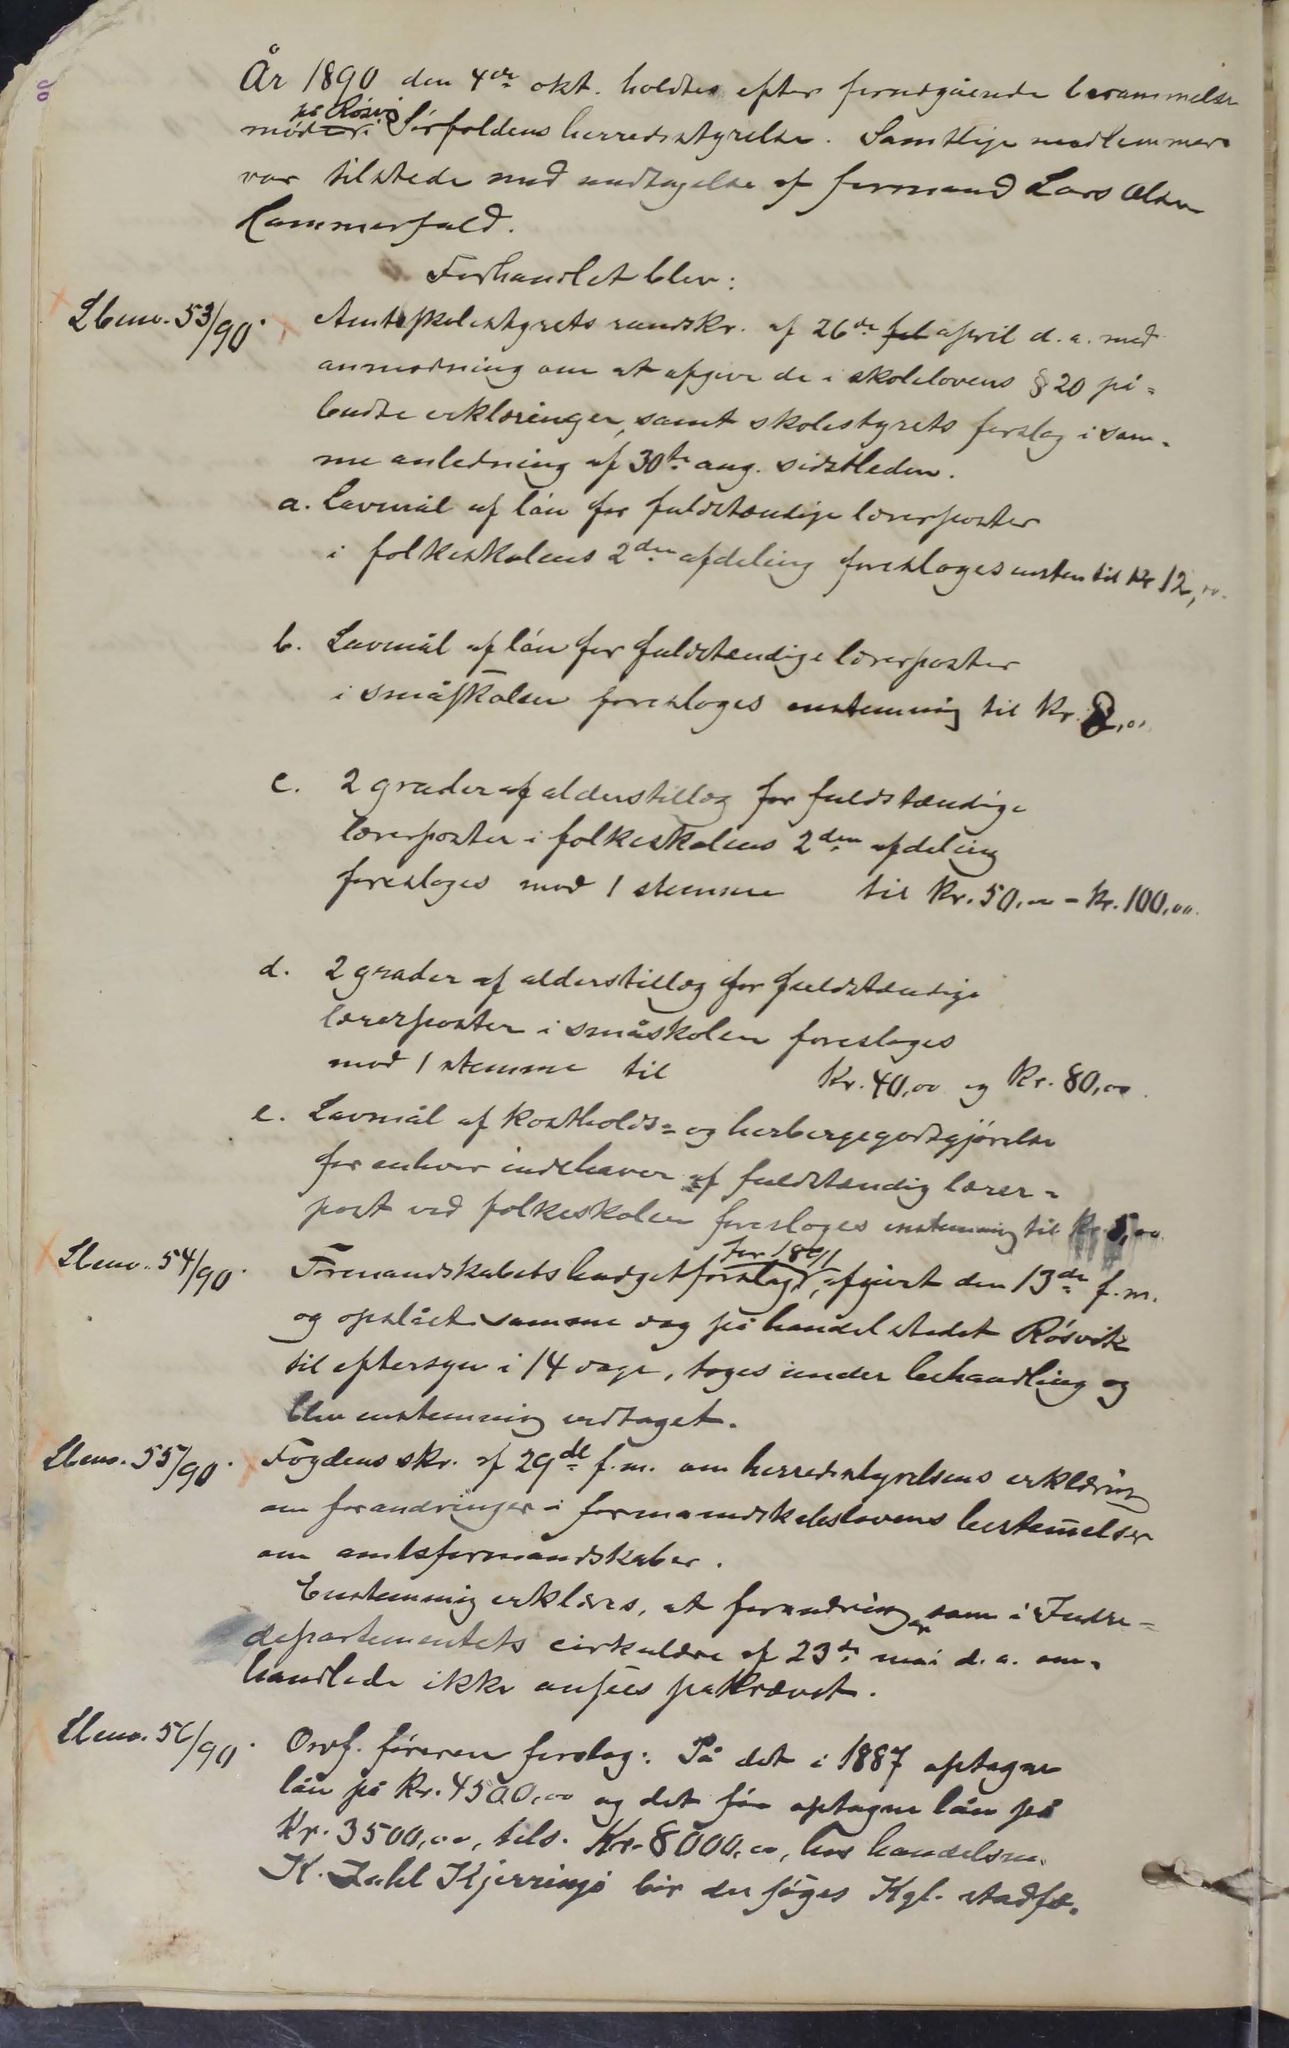 År 1890 den 4de okt. holdtes efter forudgående berammelse
på Røsvig
møde i Sørfoldens herredsstyrelse. Samtlige medlemmer
var tilstede med undtagelse af formand Lars Olsen
Kammerfald.
Forhandlet blev:
Lbno. 53/90. Amtsskolestyrets rundskr. af 26de feb april d. a. med
anmodning om at afgive de i skolelovens § 20 på=
budte erklæringer, samt skolestyrets forslag i sam=
me anledning af 30te aug. sidstleden.
a. Lavmål af løn for fuldstændige lærerposter
i folkeskolens 2den afdeling foresloges enstem til Kr 12,00.
b. Lavmål af løn for fuldstændige lærerposter
i småskolen foresloges enstemmig til Kr. 8,00
c. 2 grader af alderstillæg for fuldstændige
lærerposter i folkeskolens 2den afdeling
foresloges mod 1 stemme til Kr. 50,00 - Kr. 100,00.
d. 2 grader af alderstillæg for fuldstændige
lærerposter i småskolen foresloges
mod 1 stemme til Kr. 40,00 og Kr. 80,00.
e. Lavmål af kostholds= og herbergegodtgjørelse
for enhver indehaver af fuldstændig lærer=
post ved folkeskolen foresloges enstemmig til Kr. 5,00
for 1891
Lbno. 54/90. Formandskabets budgetforslag, afgivet den 13de f. m.
og opslået samme dag på handelstedet Røsvik
til eftersyn i 14 dage, toges under behandling og
blev enstemmig vedtaget.
Lbno. 55/90. Fogdens skr. af 29de f. m. om herredsstyrelsens erklæring
om forandringer i formandskabslovens bestemmelser
om amtsformandskaber.
Enstemmig erklæres, at forandringer som i Indre=
departementets cirkulære af 23de mai d. a. om=
handlede ikke ansees påkrævet.
Lbno. 56/90. Ordf. føreren forslag: På det i 1887 optagne
lån på Kr. 4500,00 og det før optagne lån på
Kr. 3500,00, tils. Kr. 8000,00, hos handelsm.
K. Zahl Kjerringø bør der søges Kgl. stadfæ=